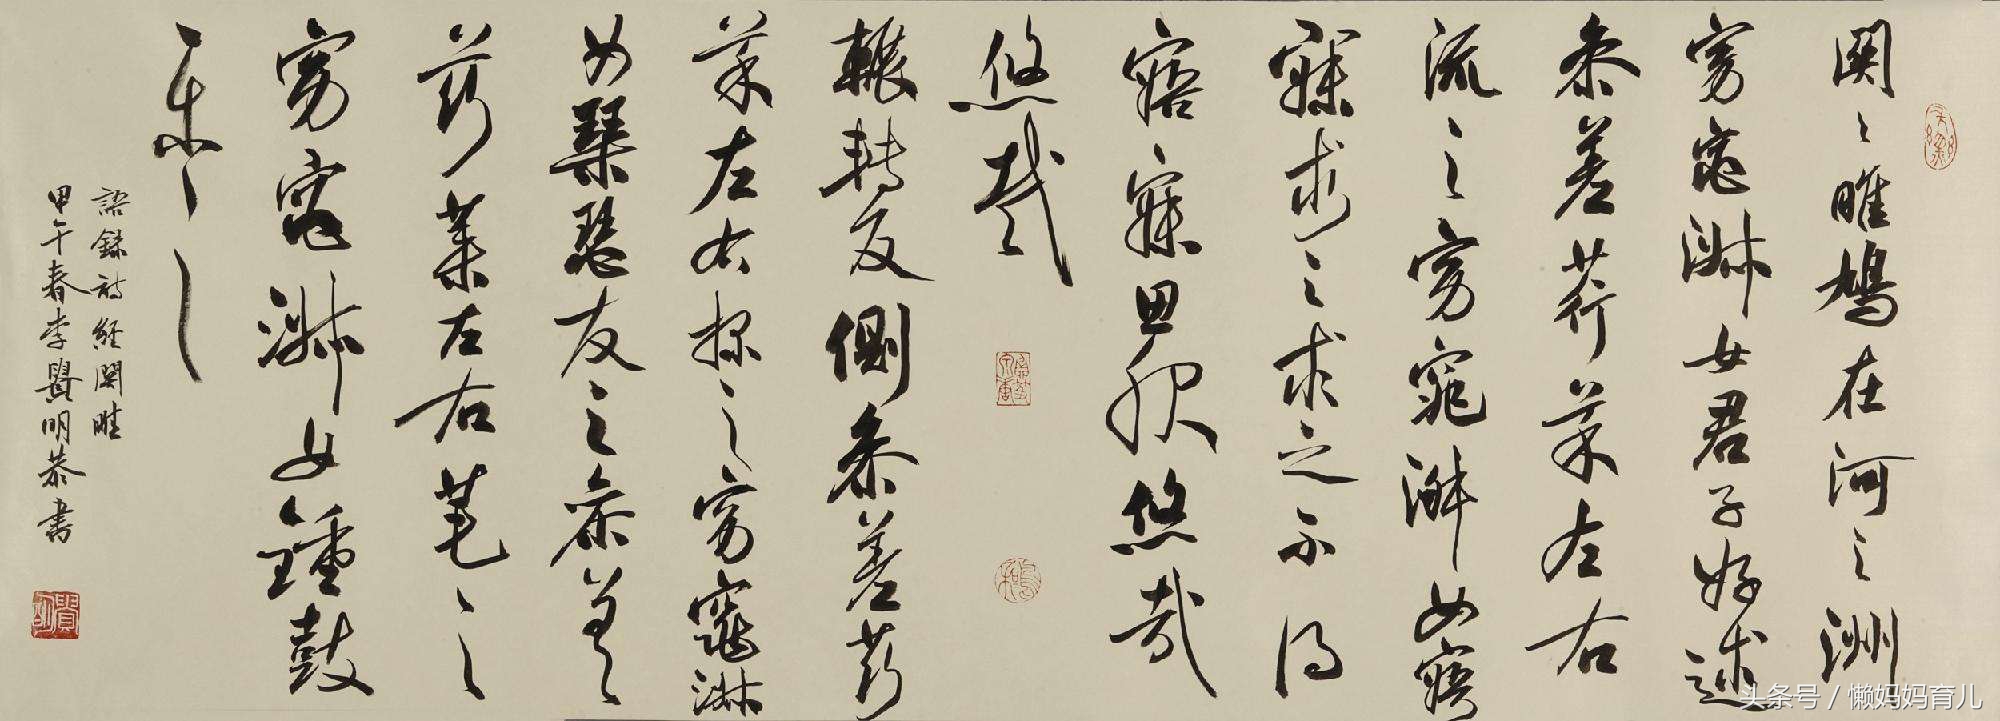 関々雎鳩在河之洲
窈窕淑女君子好逑
参差荇菜左右
流之窈窕淑女寤
寐求之求之不得
寤寐思服悠哉
悠哉
輾轉反側参差荇
菜左右採之窈窕淑
女琴瑟友之参差
荇菜左右芼之
窈窕淑女鍾鼓
乐之
語録詩經関雎
甲午春李賢明恭書
賢明
头条号 / 懒妈妈育儿